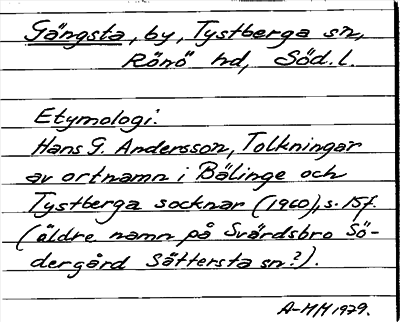 Gängsta, by, Tystberga sn,
Rönö hd, Söd. l.
Etymologi:
Hans G. Andersson, Tolkningar
av ortnamn i Bälinge och
Tystberga socknar (1960), s. 15f.
(äldre namn på Svärdsbro Sö-
dergård Sättersta sn?).
A-MH 1979.